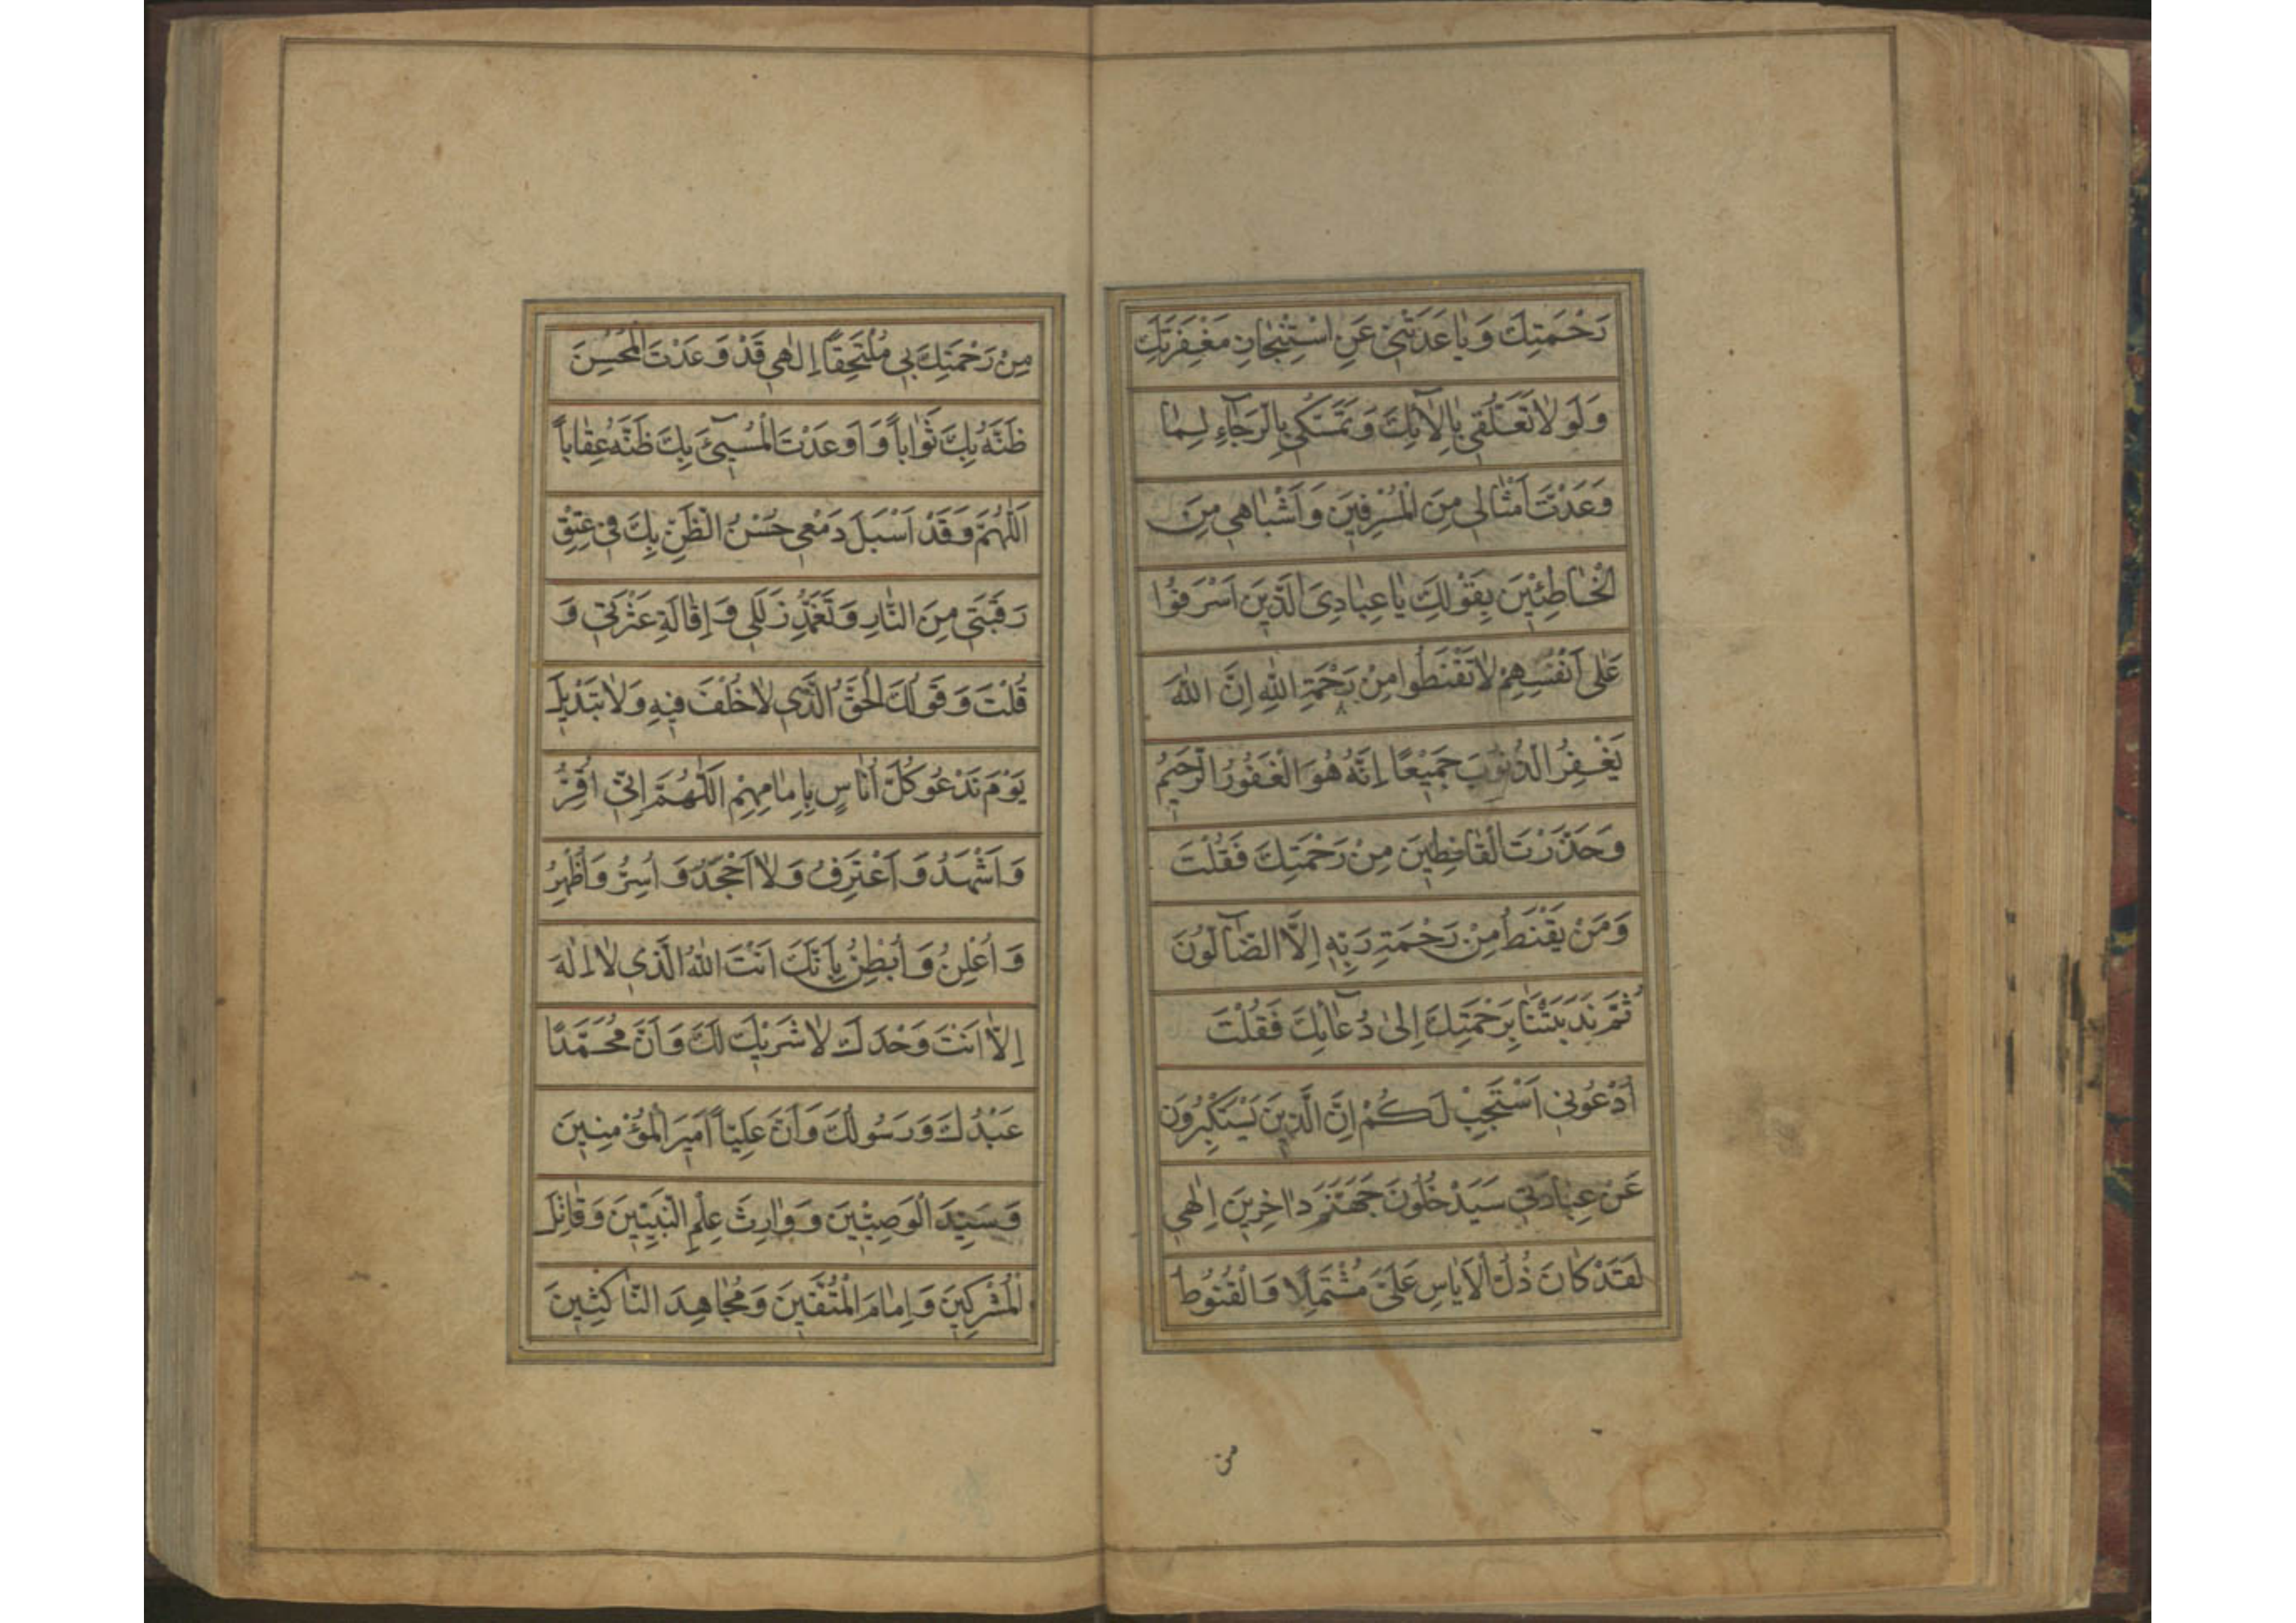 رَحْمَتِكَ وَبَاعَدَتْنِي عَنِ اسْتِنْجَازِ مَغْفِرَتِكَ
وَلَوْ لَا تَعَلُّقِي بِآلَائِكَ وَتَمَسُّكِي بِالرَّجَاءِ لِمَا
وَعَدْتَ أَمْثَالِي مِنَ الْمُسْرِفِينَ وَأَشْبَاهِي مِنَ
الْخَاطِئِينَ بِقَوْلِكَ يَا عِبَادِيَ الَّذِينَ أَسْرَفُوا
عَلَى أَنْفُسِهِمْ لَا تَقْنَطُوا مِنْ رَحْمَةِ اللهِ إِنَّ اللهَ
يَغْفِرُ الذُّنُوبَ جَمِيْعًا إِنَّهُ هُوَ الْغَفُورُ الرَّحِيمُ
وَحَذَّرْتَ الْقَانِطِينَ مِنْ رَحْمَتِكَ فَقُلْتَ
وَمَنْ يَقْنَطُ مِنْ رَحْمَةِ رَبِّهِ إِلَّا الضَّآلُّونَ
ثُمَّ نَدَبْتَنَا بِرَحْمَتِكَ إِلَى دُعَائِكَ فَقُلْتَ
أُدْعُونِي أَسْتَجِبْ لَكُمْ إِنَّ الَّذِينَ يَسْتَكْبِرُونَ
عَنْ عِبَادَتِي سَيَدْخُلُونَ جَهَنَّمَ دَاخِرِينَ إِلٰهِي
لَقَدْ كَانَ ذُلُّ الْأَيَاسِ عَلَيَّ مُشْتَمِلًا وَالْقُنُوطُ
من
مِنْ رَحْمَتِكَ بِي مُلْتَحِفًا إِلٰهِي قَدْ وَعَدْتَ الْمُحْسِنَ
ظَنَّهُ بِكَ ثَوَابًا وَأَوْعَدْتَ الْمُسِيءَ بِكَ ظَنَّهُ عِقَابًا
اَللّٰهُمَّ وَقَدْ أَسْبَلَ دَمْعِي حُسْنُ الظَّنِّ بِكَ فِي عِتْقِ
رَقَبَتِي مِنَ النَّارِ وَتَغَمُّدِ زَلَلِي وَإِقَالَةِ عَثْرَتِي وَ
قُلْتَ وَقَوْلُكَ الْحَقُّ الَّذِي لَا خُلْفَ فِيهِ وَلَا تَبْدِيلَ
يَوْمَ نَدْعُو كُلَّ أُنَاسٍ بِإِمَامِهِمْ اَللّٰهُمَّ إِنِّي أُقِرُّ
وَأَشْهَدُ وَأَعْتَرِفُ وَلَا أَجْحَدُ وَأُسِرُّ وَأُظْهِرُ
وَأُعْلِنُ وَأُبْطِنُ بِأَنَّكَ أَنْتَ اللهُ الَّذِي لَا إِلٰهَ
إِلَّا أَنْتَ وَحْدَكَ لَا شَرِيْكَ لَكَ وَأَنَّ مُحَمَّدًا
عَبْدُكَ وَرَسُولُكَ وَأَنَّ عَلِيًّا أَمِيرَ الْمُؤْمِنِينَ
وَسَيِّدَ الْوَصِيِّينَ وَوَارِثَ عِلْمِ النَّبِيِّينَ وَقَاتِلَ
الْمُشْرِكِينَ وَإِمَامَ الْمُتَّقِينَ وَمُجَاهِدَ النَّاكِثِينَ